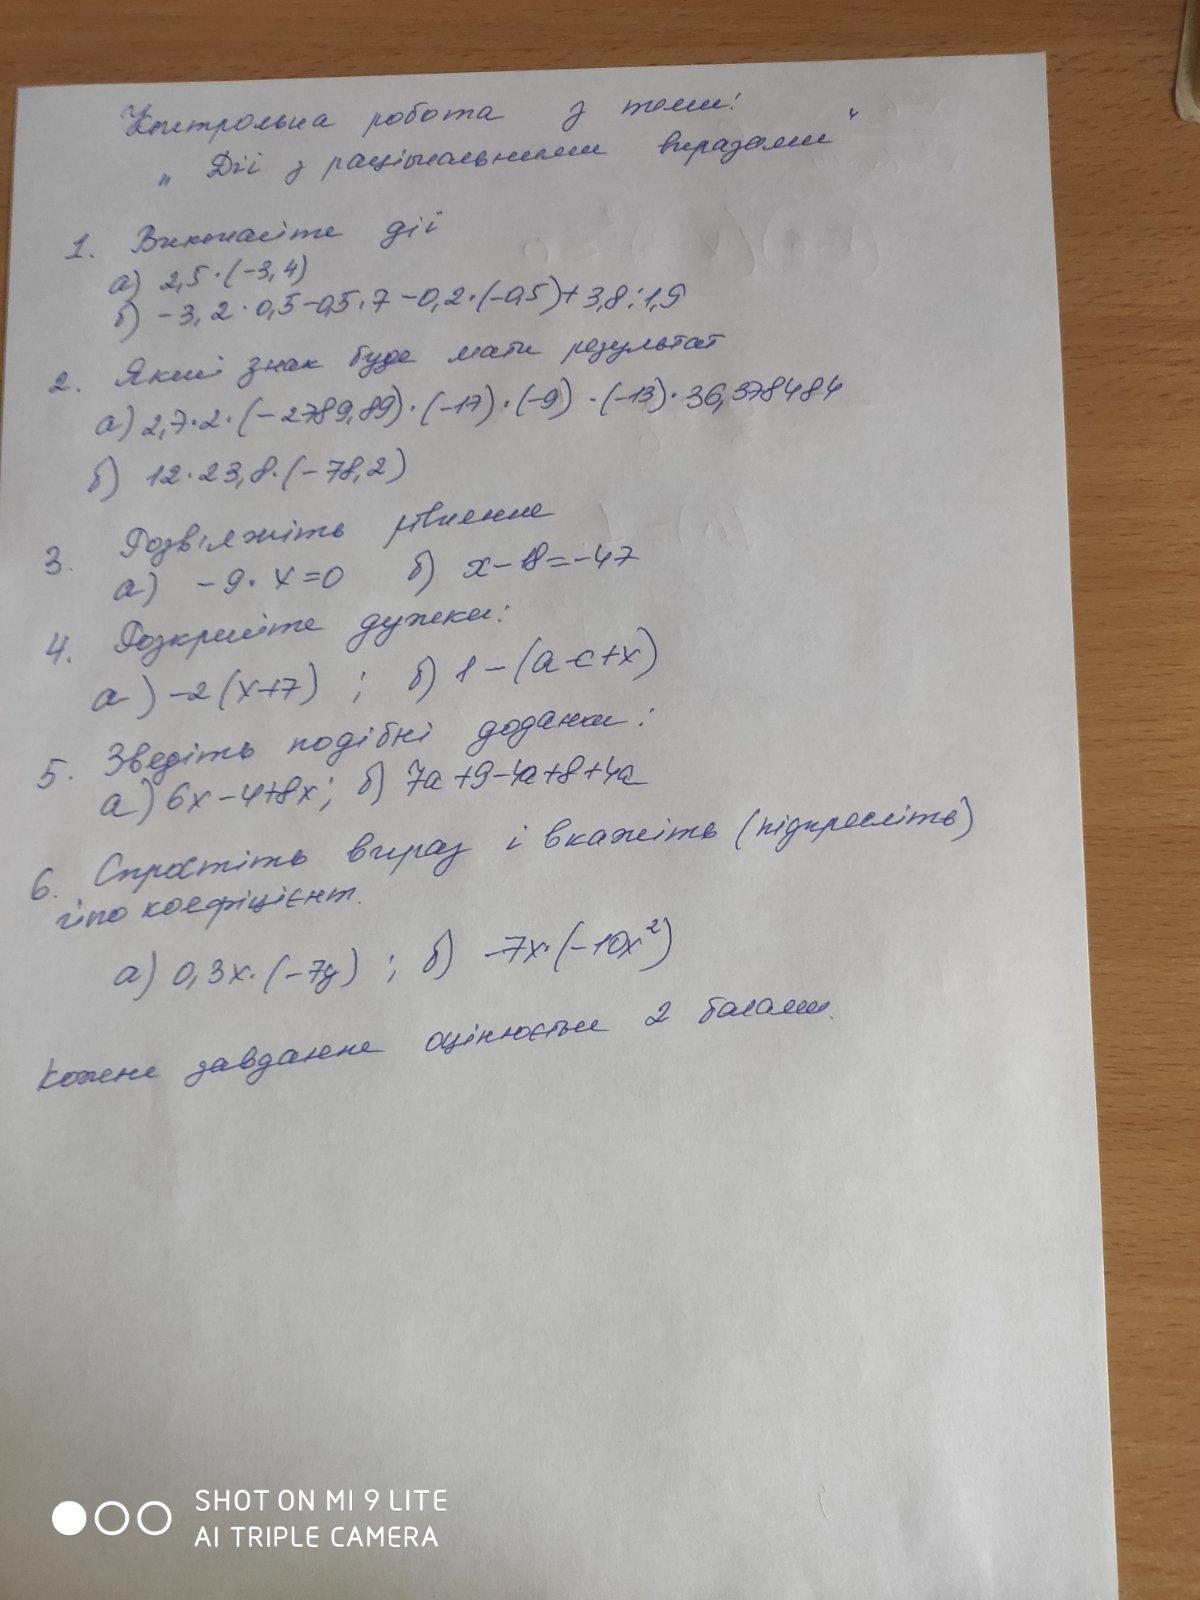 Контрольна робота з теми:
„ Дії з раціональними виразами “
1. Виконайте дії
а) 2,5·(-3,4)
б) -3,2·0,5-0,5·7-0,2·(-0,5)+3,8:1,9
2. Який знак буде мати результат
а) 2,7·2·(-2789,89)·(-17)·(-9)·(-13)·36,378484
б) 12·23,8·(-78,2)
3. Розв'яжіть рівняння
а) -9·x=0 б) x-18=-47
4. Розкрийте дужки:
а) -2(x+7) ; б) 1-(a-c+x)
5. Зведіть подібні доданки:
а) 6x-4+8x; б) 7a+9-4a+8+4a
6. Спростіть вираз і вкажіть (підкресліть)
його коефіцієнт.
а) 0,3x·(-7y) ; б) -7x·(-10x²)
Кожне завдання оцінюється 2 балами.
SHOT ON MI 9 LITE
AI TRIPLE CAMERA